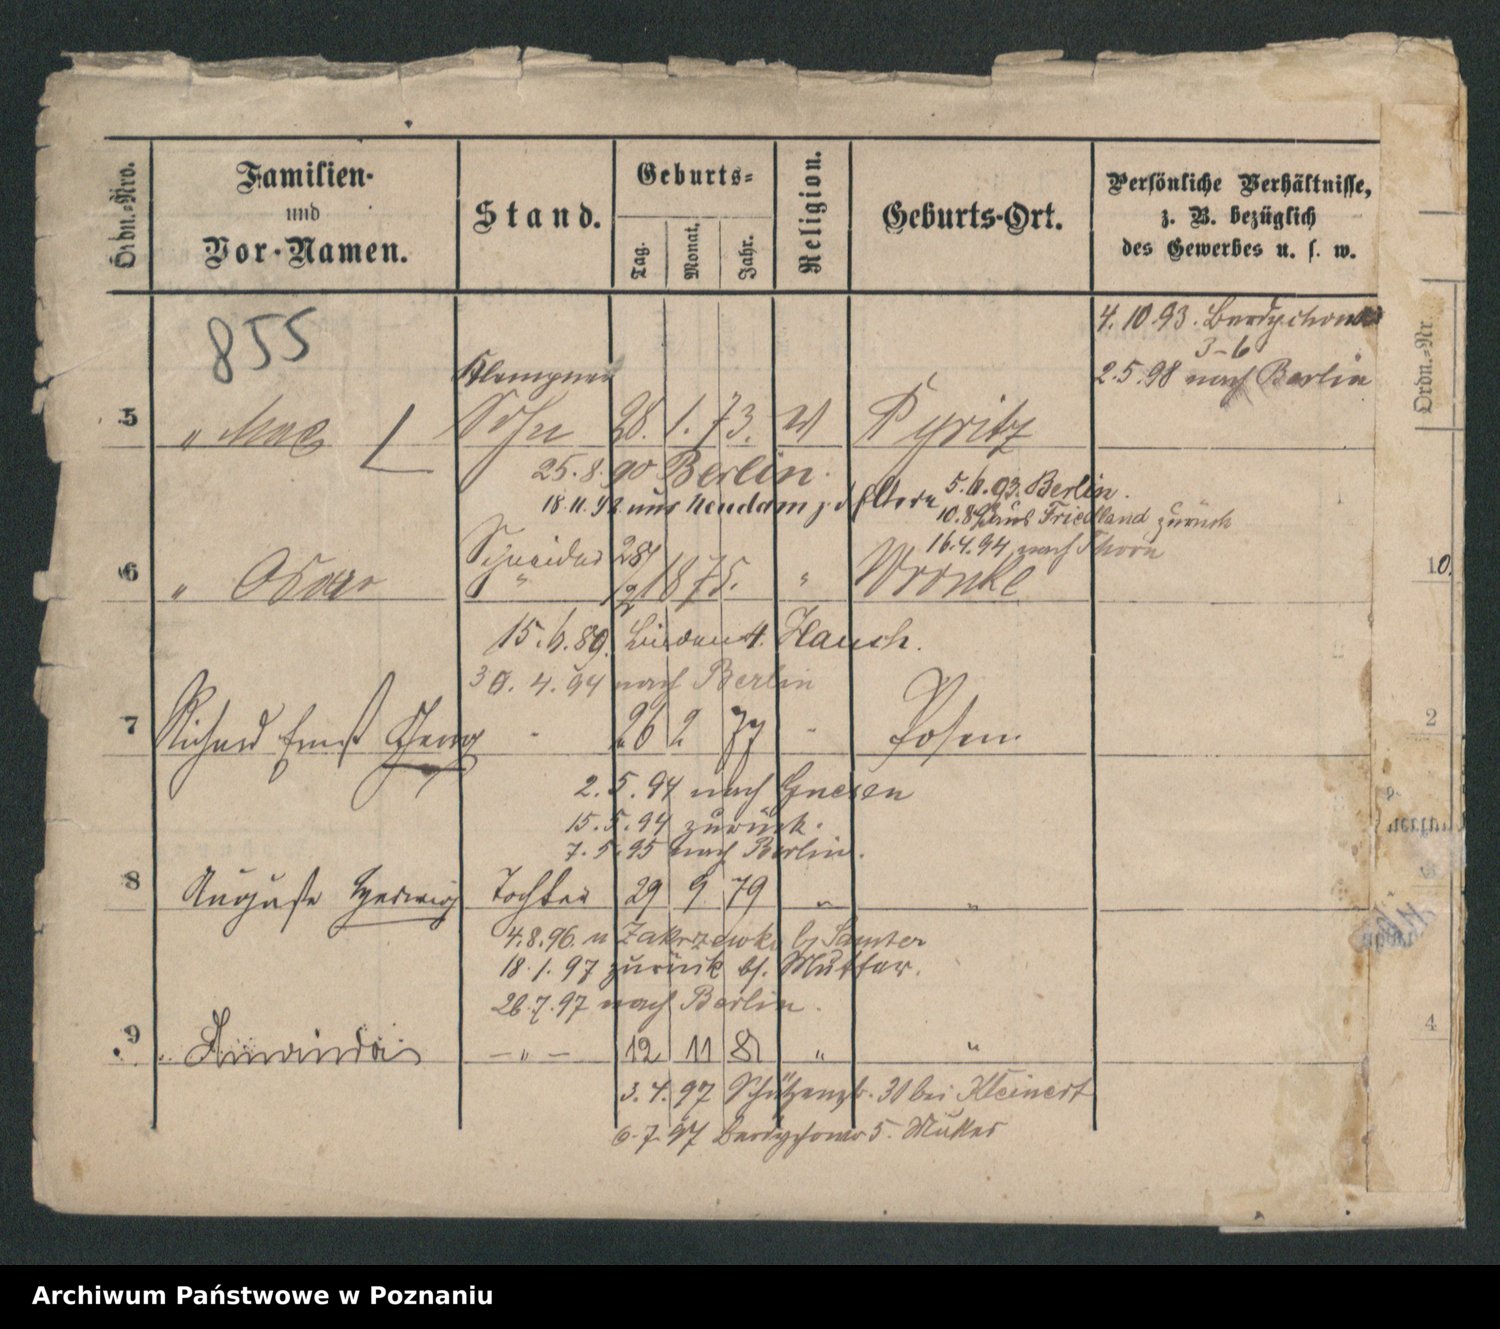 Ordn.-Nro.
Familien-
und
Vor-Namen.
Stand.
Geburts-
Tag.
Monat.
Jahr.
Religion.
Geburts-Ort.
Persönliche Verhältnisse,
z. B. bezüglich
des Gewerbes u. s. w.
855
4.10.93. Berdychowo
3-6
2.5.98 nach Berlin
Klempner
5 " Max Sohn 28. 1. 73. Pyritz
25.8.90 Berlin.
18.11.92 aus Neudamm z. d. Eltern
5.6.93. Berlin.
aus Friedland zurück
16.4.94 nach Thorn
Schneider
6 " Oskar " 28/12 1875. " Wronke
15.6.89. Hauch.
30.4.94 nach Berlin
7 Richard Ernst Georg " 26 2 77 " Posen.
2.5.94 nach Gnesen
15.5.94 zurück.
7.5.95 nach Berlin.
8 Auguste Hedwig Tochter 29 9 79 " "
4.8.96. n Zakrzewko b/ Samter
18.1.97 zurück bf. Mutter.
26.7.97 nach Berlin.
9 " Amanda — " — 12 11 81 " "
3.4.97 Schützenstr. 30 bei Kleinert
6.7.97 Berdychowo 5. Mutter
Ordn.-Nr.
10.
2
4
Archiwum Państwowe w Poznaniu